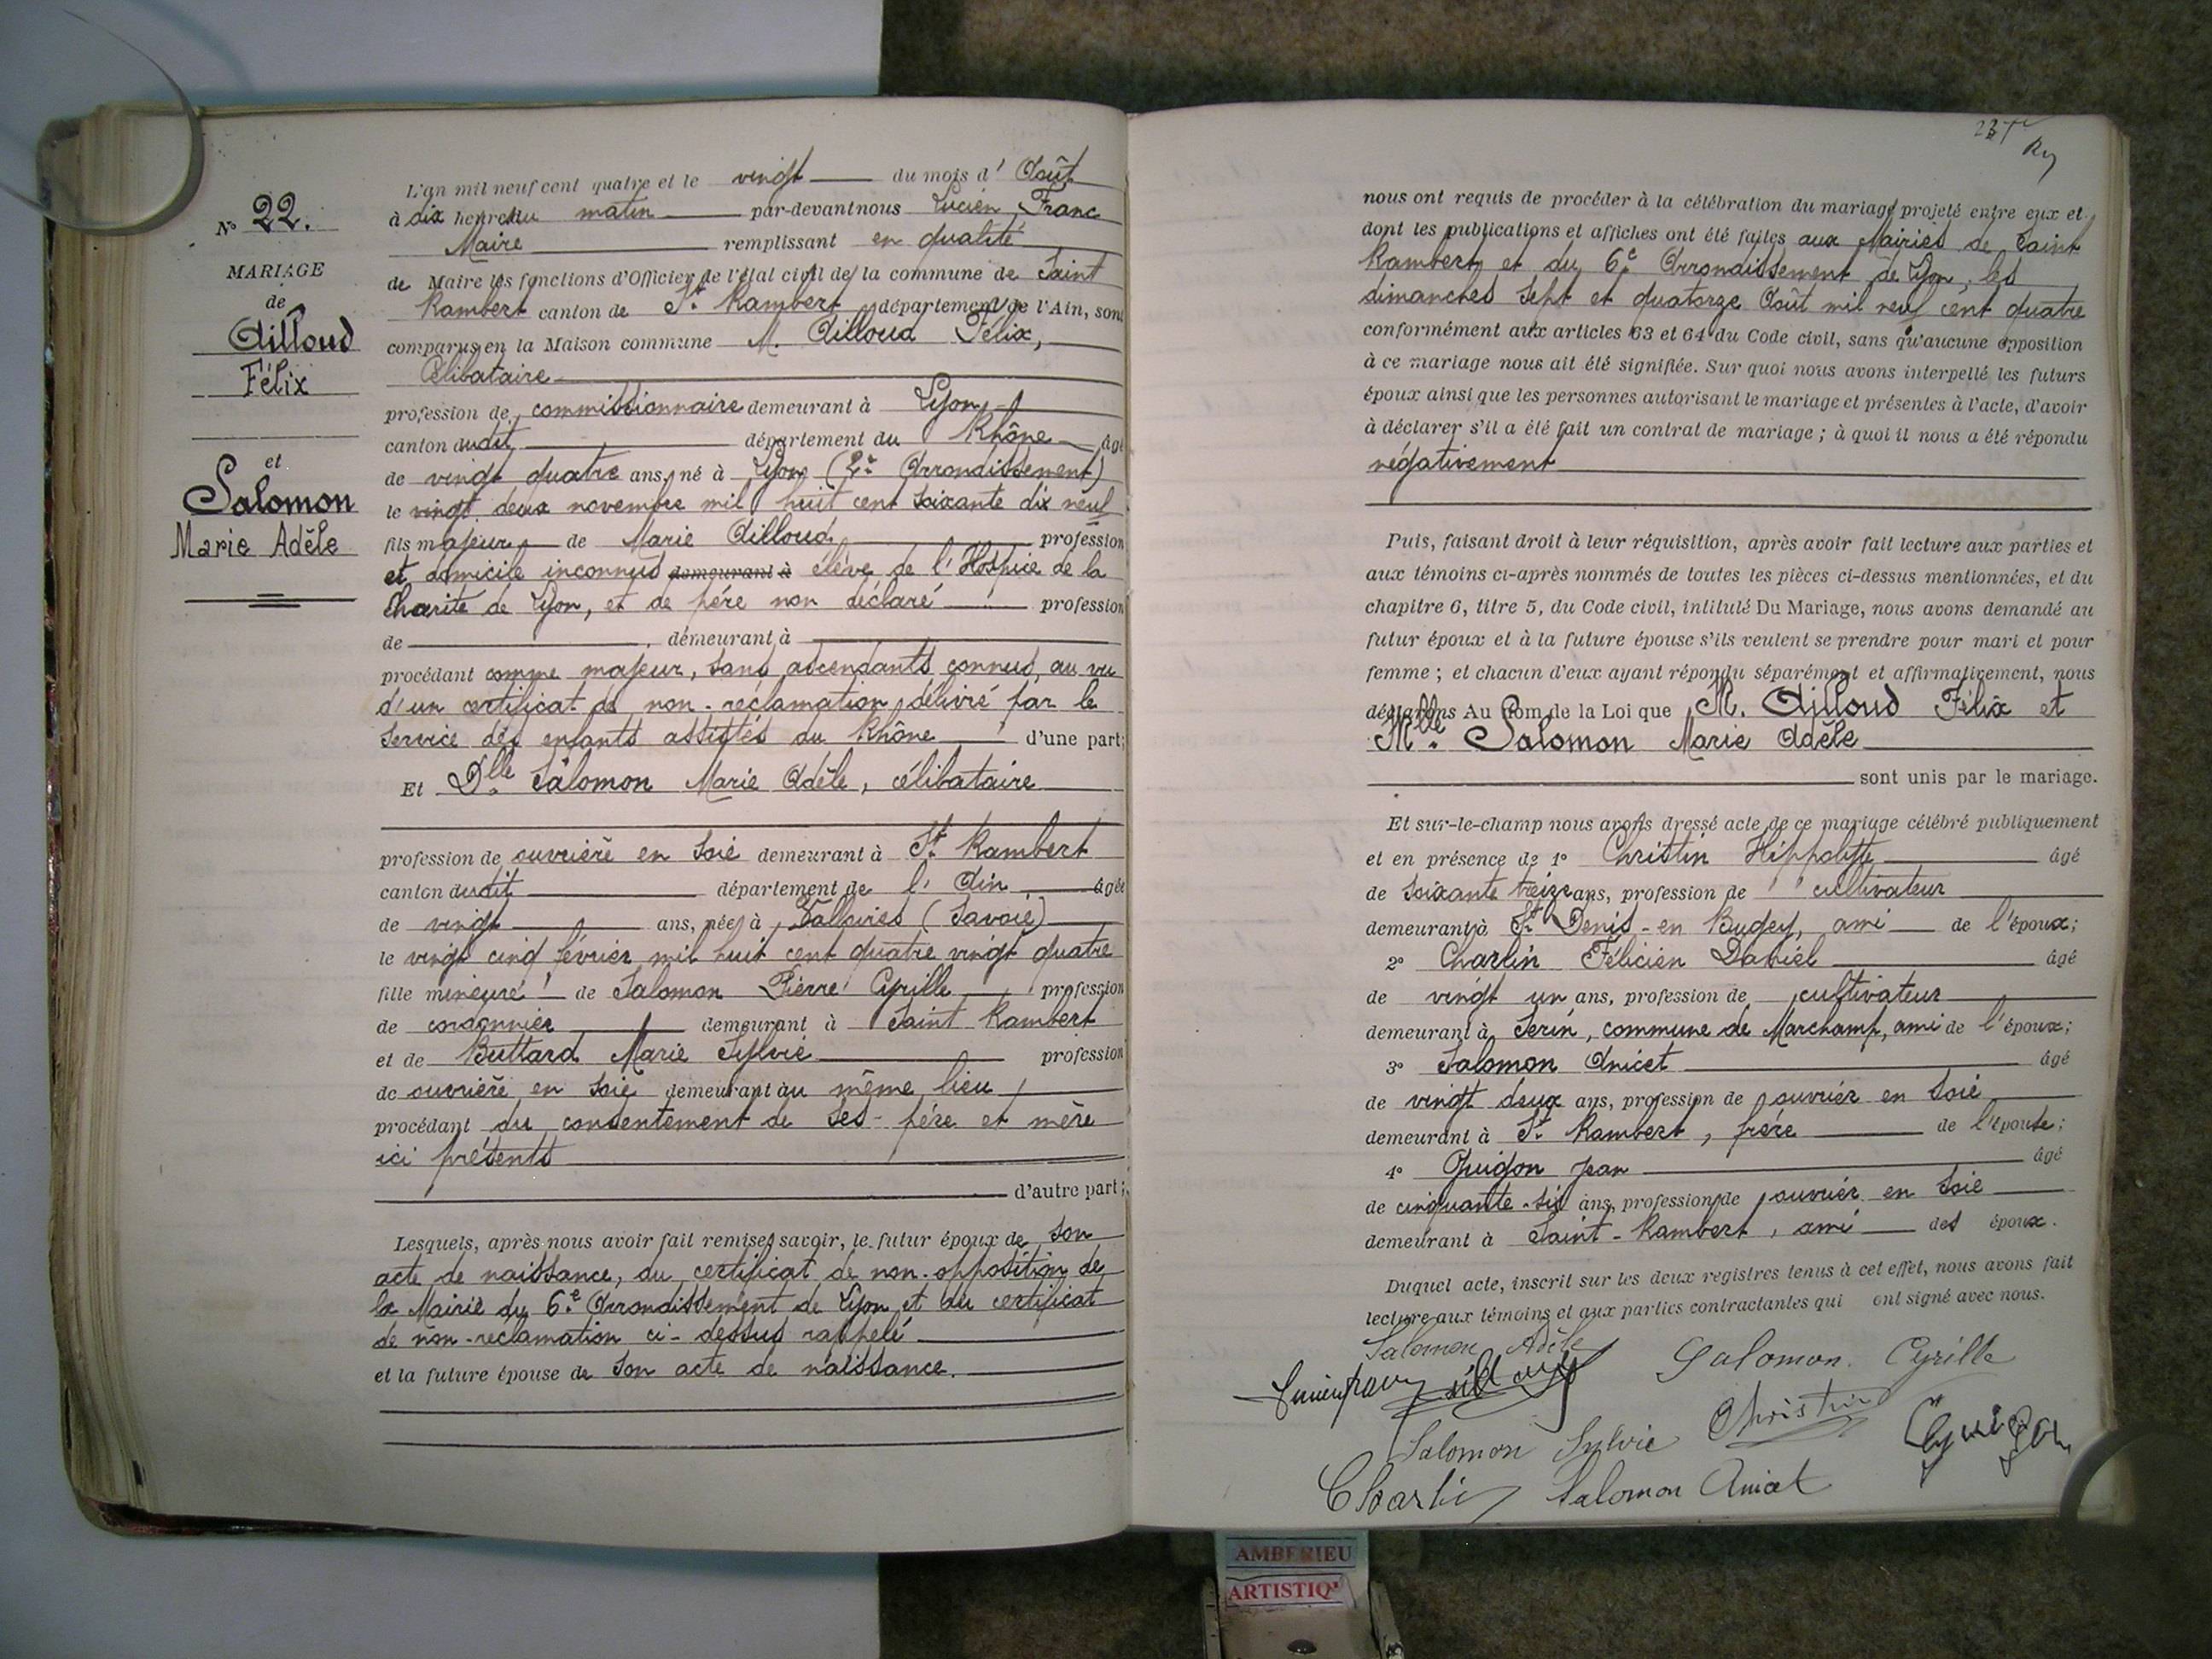 N° 22.
MARIAGE
de
Ailloud
Félix
et
Salomon
Marie Adèle
L'an mil neuf cent quatre et le vingt du mois d' Août
à dix heures du matin par-devant nous Lucien Franc
Maire remplissant en qualité
de Maire les fonctions d'Officier de l'état civil de la commune de Saint
Rambert canton de St Rambert département de l'Ain, sont
comparus en la Maison commune M. Ailloud Félix,
Célibataire
profession de commissionnaire demeurant à Lyon
canton dudit département du Rhône âgé
de vingt quatre ans, né à Lyon (2e Arrondissement)
le vingt deux novembre mil huit cent soixante dix neuf
fils majeur de Marie Ailloud profession
et domicile inconnus demeurant à élève de l'Hospice de la
Charité de Lyon, et de père non déclaré profession
de demeurant à
procédant comme majeur, sans ascendants connus, au vu
d'un certificat de non-réclamation délivré par le
Service des enfants assistés du Rhône d'une part;
Et Dlle Salomon Marie Adèle, célibataire
profession de ouvrière en soie demeurant à St Rambert
canton dudit département de l'Ain âgée
de vingt ans, née à (Savoie)
le vingt cinq février mil huit cent quatre vingt quatre
fille mineure de Salomon Pierre Cyrille profession
de cordonnier demeurant à Saint Rambert
et de Buttard Marie Sylvie profession
de ouvrière en soie demeurant au même lieu
procédant du consentement de ses père et mère
ici présents
d'autre part;
Lesquels, après nous avoir fait remise, savoir, le futur époux de son
acte de naissance, du certificat de non-opposition de
la Mairie du 6e Arrondissement de Lyon et du certificat
de non-réclamation ci-dessus rappelé
et la future épouse de son acte de naissance.
nous ont requis de procéder à la célébration du mariage projeté entre eux et
dont les publications et affiches ont été faites aux Mairies de Saint
Rambert et du 6e Arrondissement de Lyon, les
dimanches sept et quatorze Août mil neuf cent quatre
conformément aux articles 63 et 64 du Code civil, sans qu'aucune opposition
à ce mariage nous ait été signifiée. Sur quoi nous avons interpellé les futurs
époux ainsi que les personnes autorisant le mariage et présentes à l'acte, d'avoir
à déclarer s'il a été fait un contrat de mariage; à quoi il nous a été répondu
négativement
Puis, faisant droit à leur réquisition, après avoir fait lecture aux parties et
aux témoins ci-après nommés de toutes les pièces ci-dessus mentionnées, et du
chapitre 6, titre 5, du Code civil, intitulé Du Mariage, nous avons demandé au
futur époux et à la future épouse s'ils veulent se prendre pour mari et pour
femme; et chacun d'eux ayant répondu séparément et affirmativement, nous
déclarons Au Nom de la Loi que M. Ailloud Félix et
Mlle Salomon Marie Adèle
sont unis par le mariage.
Et sur-le-champ nous avons dressé acte de ce mariage célébré publiquement
et en présence de 1° Christin Hippolyte âgé
de soixante treize ans, profession de cultivateur
demeurant à St Denis-en Bugey, ami de l'époux;
2° Charlin Félicien Daniel âgé
de vingt un ans, profession de cultivateur
demeurant à Serin, commune de Marchamp, ami de l'époux;
3° Salomon Anicet âgé
de vingt deux ans, profession de ouvrier en soie
demeurant à St Rambert, frère de l'épouse;
4° Guigon Jean âgé
de cinquante-six ans, profession de ouvrier en soie
demeurant à Saint-Rambert, ami des époux.
Duquel acte, inscrit sur les deux registres tenus à cet effet, nous avons fait
lecture aux témoins et aux parties contractantes qui ont signé avec nous.
Salomon Adèle
Lucien Franc Ailloud Salomon Cyrille
Salomon Sylvie Christin Guigon
Charlin Salomon Anicet
AMBERIEU
ARTISTIQ'